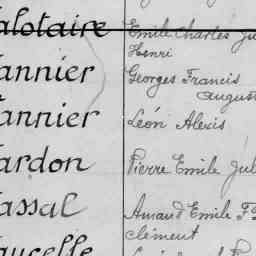 alotaire Emile Charles Ju
Henri
annier Georges Francis
August
annier Léon Alexis
ardon Pierre Emile Jul
assal Amand Emile F
clément
aucelle